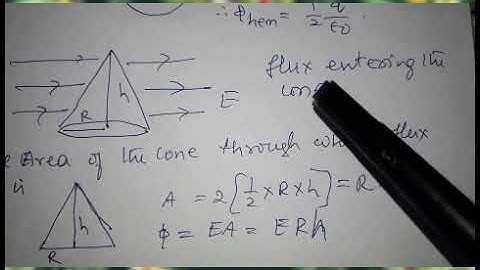 ∴ Φhem = 1/2 q/ε0
flux entering the
cone
R h E
e Area of the cone through flux
is
A = 2 [1/2 × R × h] = R
R h
φ = EA = ERh